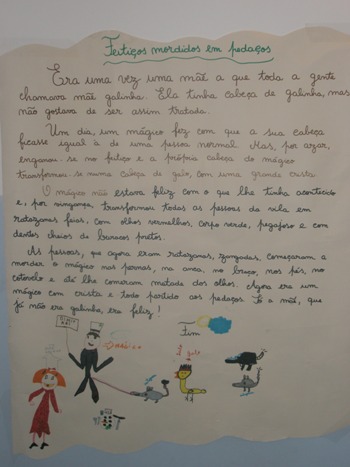 Feitiços mordidos em pedaços
Era uma vez uma mãe a que toda a gente
chamava mãe galinha. Ela tinha cabeça de galinha, mas
não gostava de ser assim tratada.
Um dia, um mágico fez com que a sua cabeça
ficasse igual à de uma pessoa normal. Mas, por azar,
enganou-se no feitiço e a própria cabeça do mágico
transformou-se numa cabeça de galo, com uma grande crista.
O mágico não estava feliz com o que lhe tinha acontecido
e, por vingança, transformou todas as pessoas da vila em
ratazanas feias, com olhos vermelhos, corpo verde, pegajoso e com
dentes cheios de buracos pretos.
As pessoas, que agora eram ratazanas, zangadas, começaram a
morder o mágico nas pernas, na anca, no braço, nos pés, no
cotovelo e até lhe comeram metade dos olhos. Agora era um
mágico com crista e todo partido aos pedaços. Só a mãe, que
já não era galinha, era feliz!
Fim